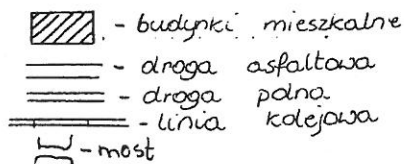 - budynki mieszkalne
- droga asfaltowa
- droga polna
- linia kolejowa
- most